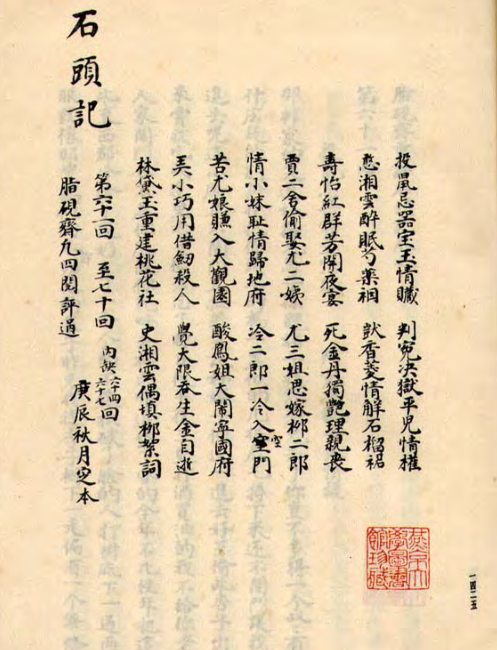 投鼠忌器宝玉情贓 判寃决獄平児情權
憨湘雲醉眠芍藥裀 獃香菱情解石榴裙
壽怡紅群芳開夜宴 死金丹獨艶理親喪
賈二舍偷娶尤二姨 尤三姐思嫁柳二郎
情小妹耻情歸地府 冷二郎一冷入空門
苦尤娘賺入大觀園 酸鳳姐大鬧寧國府
弄小巧用借劎殺人 覺大限吞生金自逝
林黛玉重建桃花社 史湘雲偶填柳絮詞
石頭記
第六十一回 至七十回 内缺六十四六十七回
脂硯齊凡四閱評過 庚辰秋月定本
燕京大學圖書館珍藏
一四二五